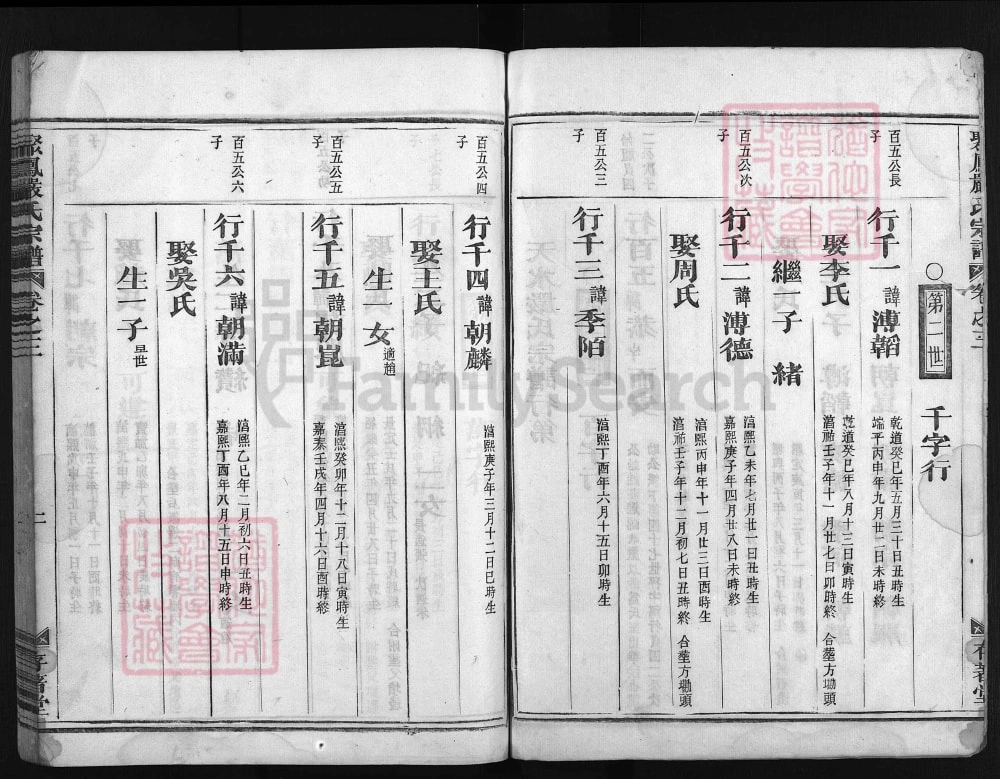 聚鳳嚴氏宗譜 卷之二
存著堂
第二世
千字行
百五公長子
行千一 諱溥韜
乾道癸巳年五月三十日丑時生
端平丙申年九月廿二日未時終
娶李氏
乾道癸巳年八月十三日寅時生
淳祐壬子年十一月廿七日卯時終 合塟方塸頭
繼一子 緒
百五公次子
行千二 諱溥德
淳熙乙未年七月廿一日丑時生
嘉熙庚子年四月廿八日未時終
娶周氏
淳熙丙申年十一月廿三日酉時生
淳祐壬子年十二月初七日丑時終 合塟方塸頭
百五公三子
行千三 諱季陌
淳熙丁酉年六月十五日卯時終
百五公四子
行千四 諱朝麟
淳熙庚子年三月十二日巳時生
娶王氏
生一女 適趙
百五公五子
行千五 諱朝崑
淳熙癸卯年十二月十八日寅時生
嘉泰壬戌年四月十六日酉時終
百五公六子
行千六 諱朝滿
淳熙乙巳年二月初六日丑時生
嘉熙丁酉年八月十五日申時終
娶吳氏
生一子 早世
聚鳳嚴氏宗譜 卷之二
二
存著堂
FamilySearch